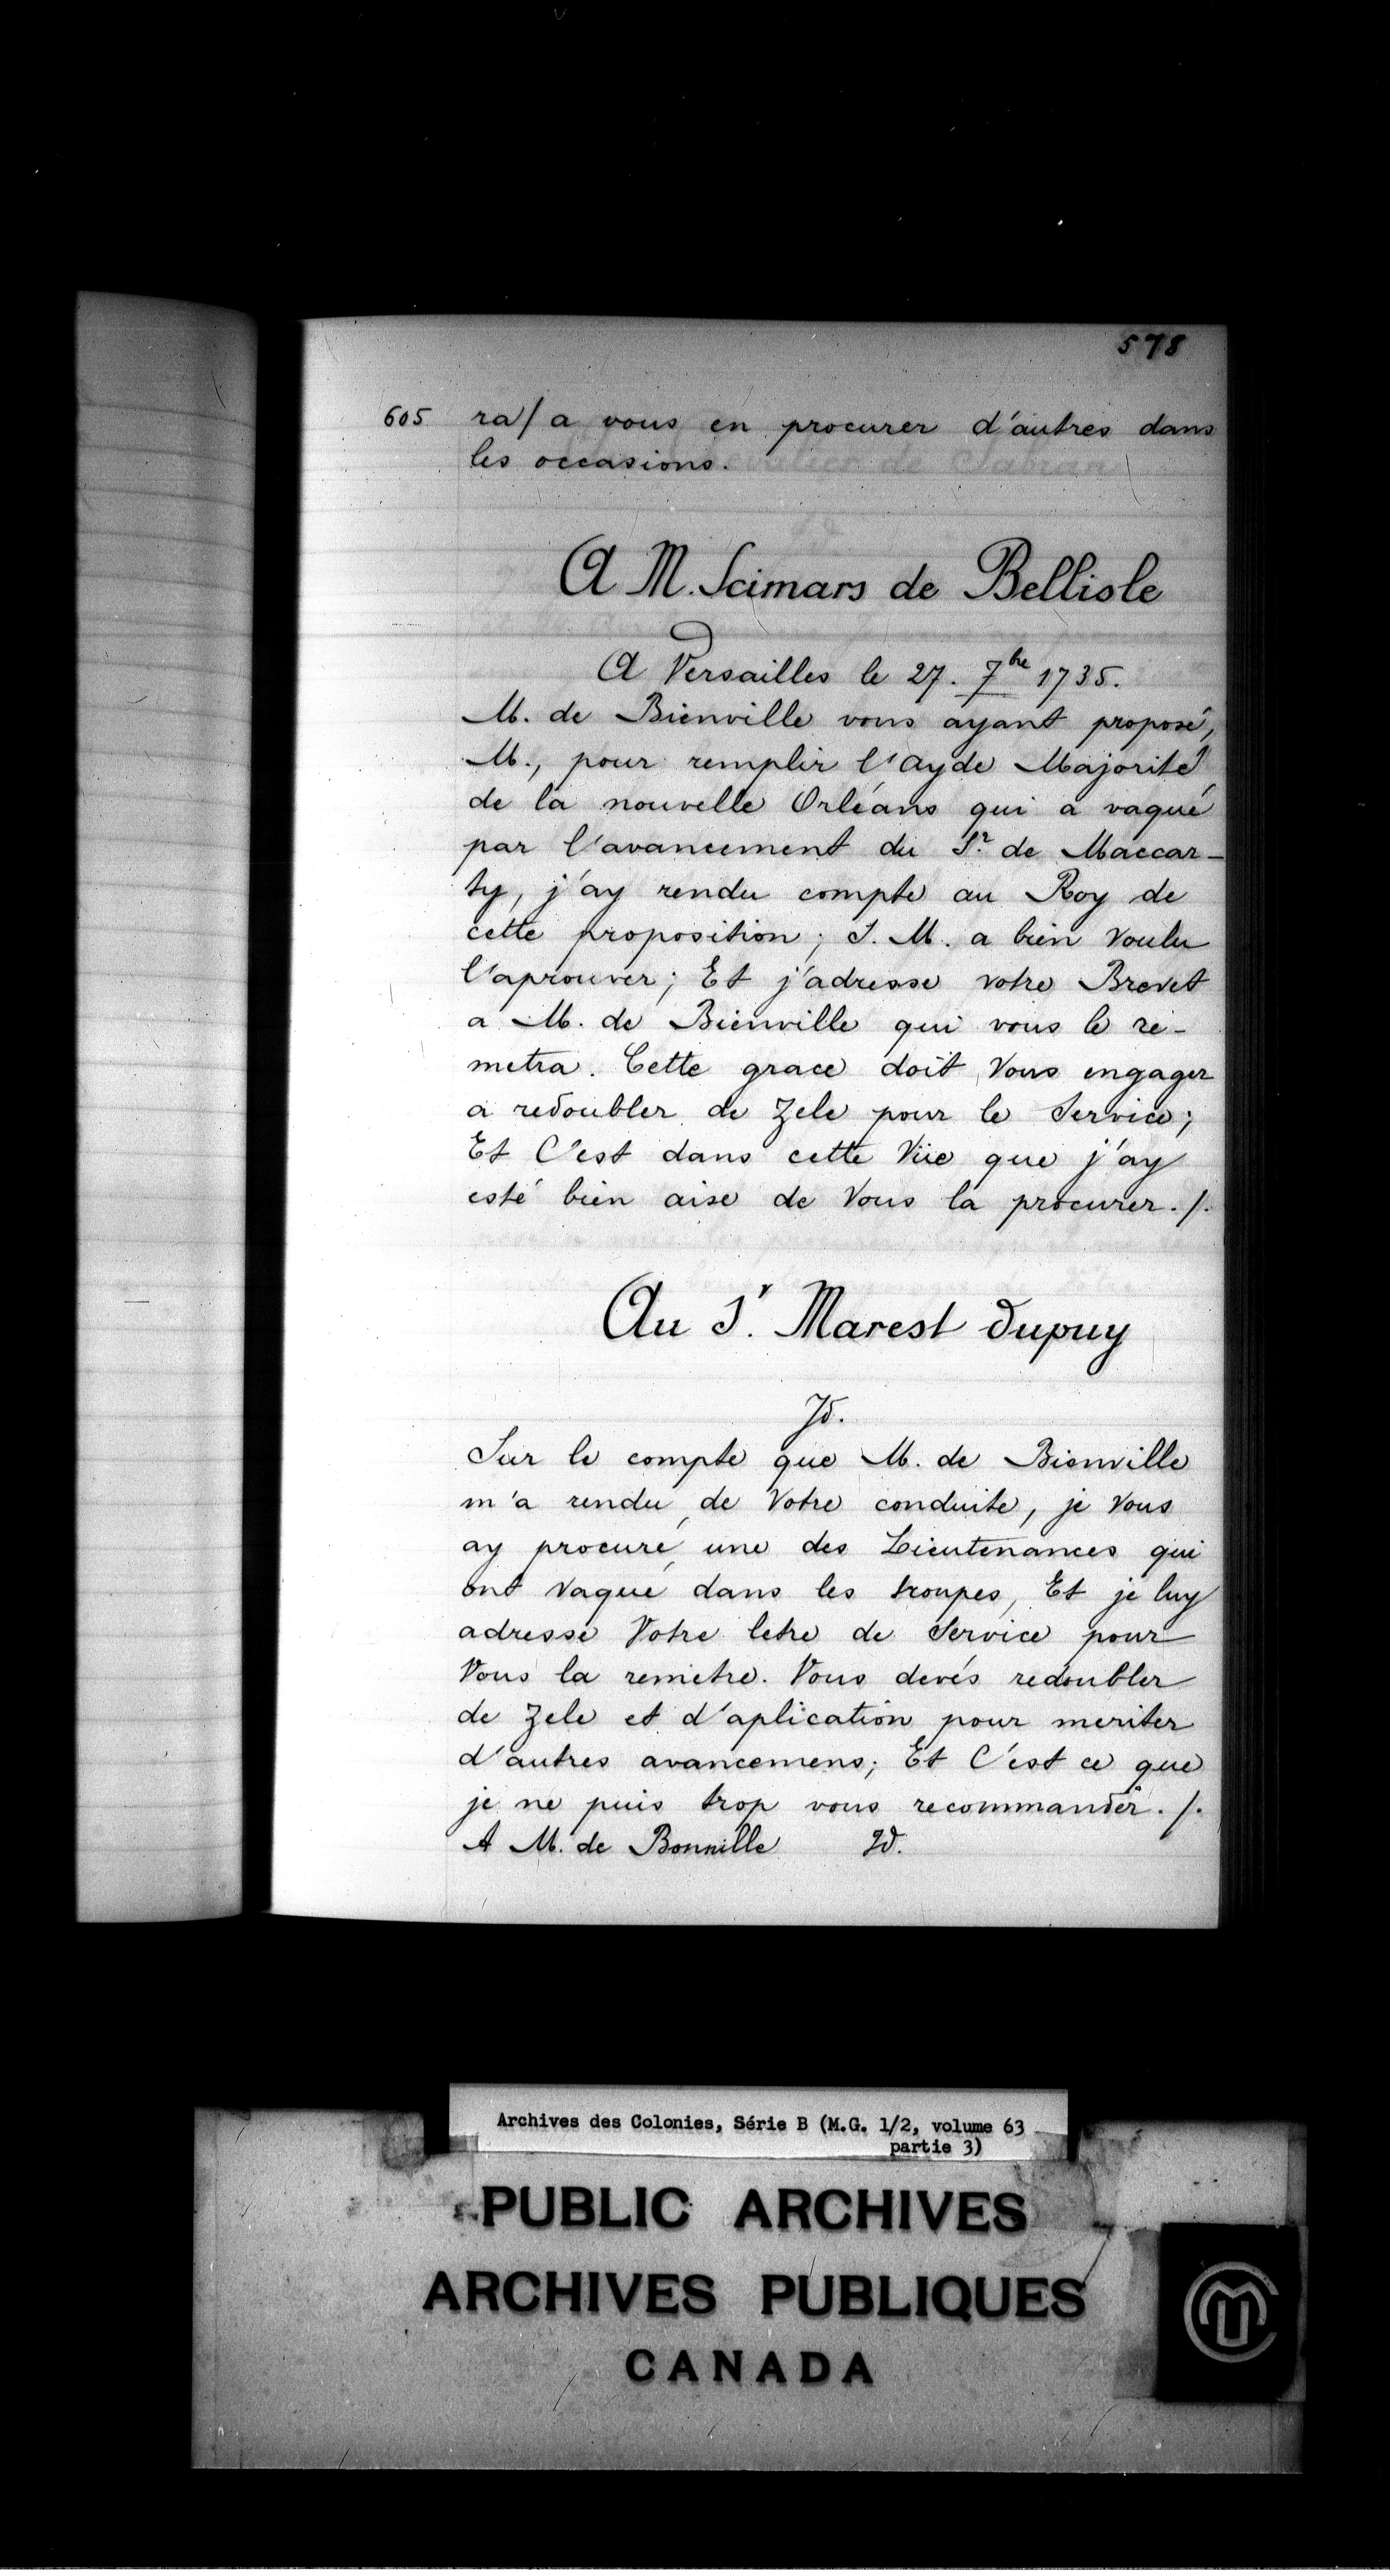 578
605 ra/ a vous en procurer d'autres dans
les occasions.
A M. Scimars de Bellisle
A Versailles le 27. 7bre 1735.
M. de Bienville vous ayant proposé,
M., pour remplir l'ayde Majorité
de la nouvelle Orléans qui a vaqué
par l'avancement du Sr. de Maccar-
ty, j'ay rendu compte au Roy de
cette proposition; S. M. a bien voulu
l'aprouver; Et j'adresse votre Brevet
a M. de Bienville qui vous le re-
metra. Cette grace doit Vous engager
a redoubler de Zele pour le Service;
Et C'est dans cette Vüe que j'ay
esté bien aise de Vous la procurer. /.
Au Sr. Marest dupuy
Id.
Sur le compte que M. de Bienville
m'a rendu de Votre conduite, je Vous
ay procuré une des Lieutenances qui
ont Vaqué dans les troupes, Et je luy
adresse Votre letre de Service pour
Vous la remetre. Vous devés redoubler
de Zele et d'aplication pour meriter
d'autres avancemens; Et C'est ce que
je ne puis trop vous recommander. /.
A M. de Bonnille Id.
Archives des Colonies, Série B (M.G. 1/2, volume 63
partie 3)
PUBLIC ARCHIVES
ARCHIVES PUBLIQUES
CANADA